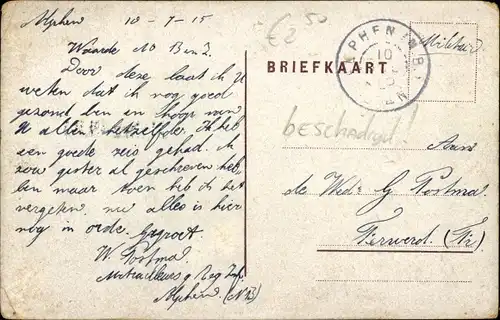 Alphen 10-7-15
Waarde M B en Z.
Door deze laat ik U
weten dat ik nog goed
gezond ben en hoop van
U allen hetzelfde. Ik heb
een goede reis gehad. Ik
zou gister al geschreven heb-
ben maar toen heb ik het
vergeten. nu alles is hier
nog in orde. Gegroet.
W. Postma
Mitrailleurs 9 Reg Inf.
Alphen. (N.B)
€2 50
BRIEFKAART
ALPHEN (N.BRANT)
10
Militair
beschadigd!
Aan
de Wed: G Postma
Ferwerd. (Fr)